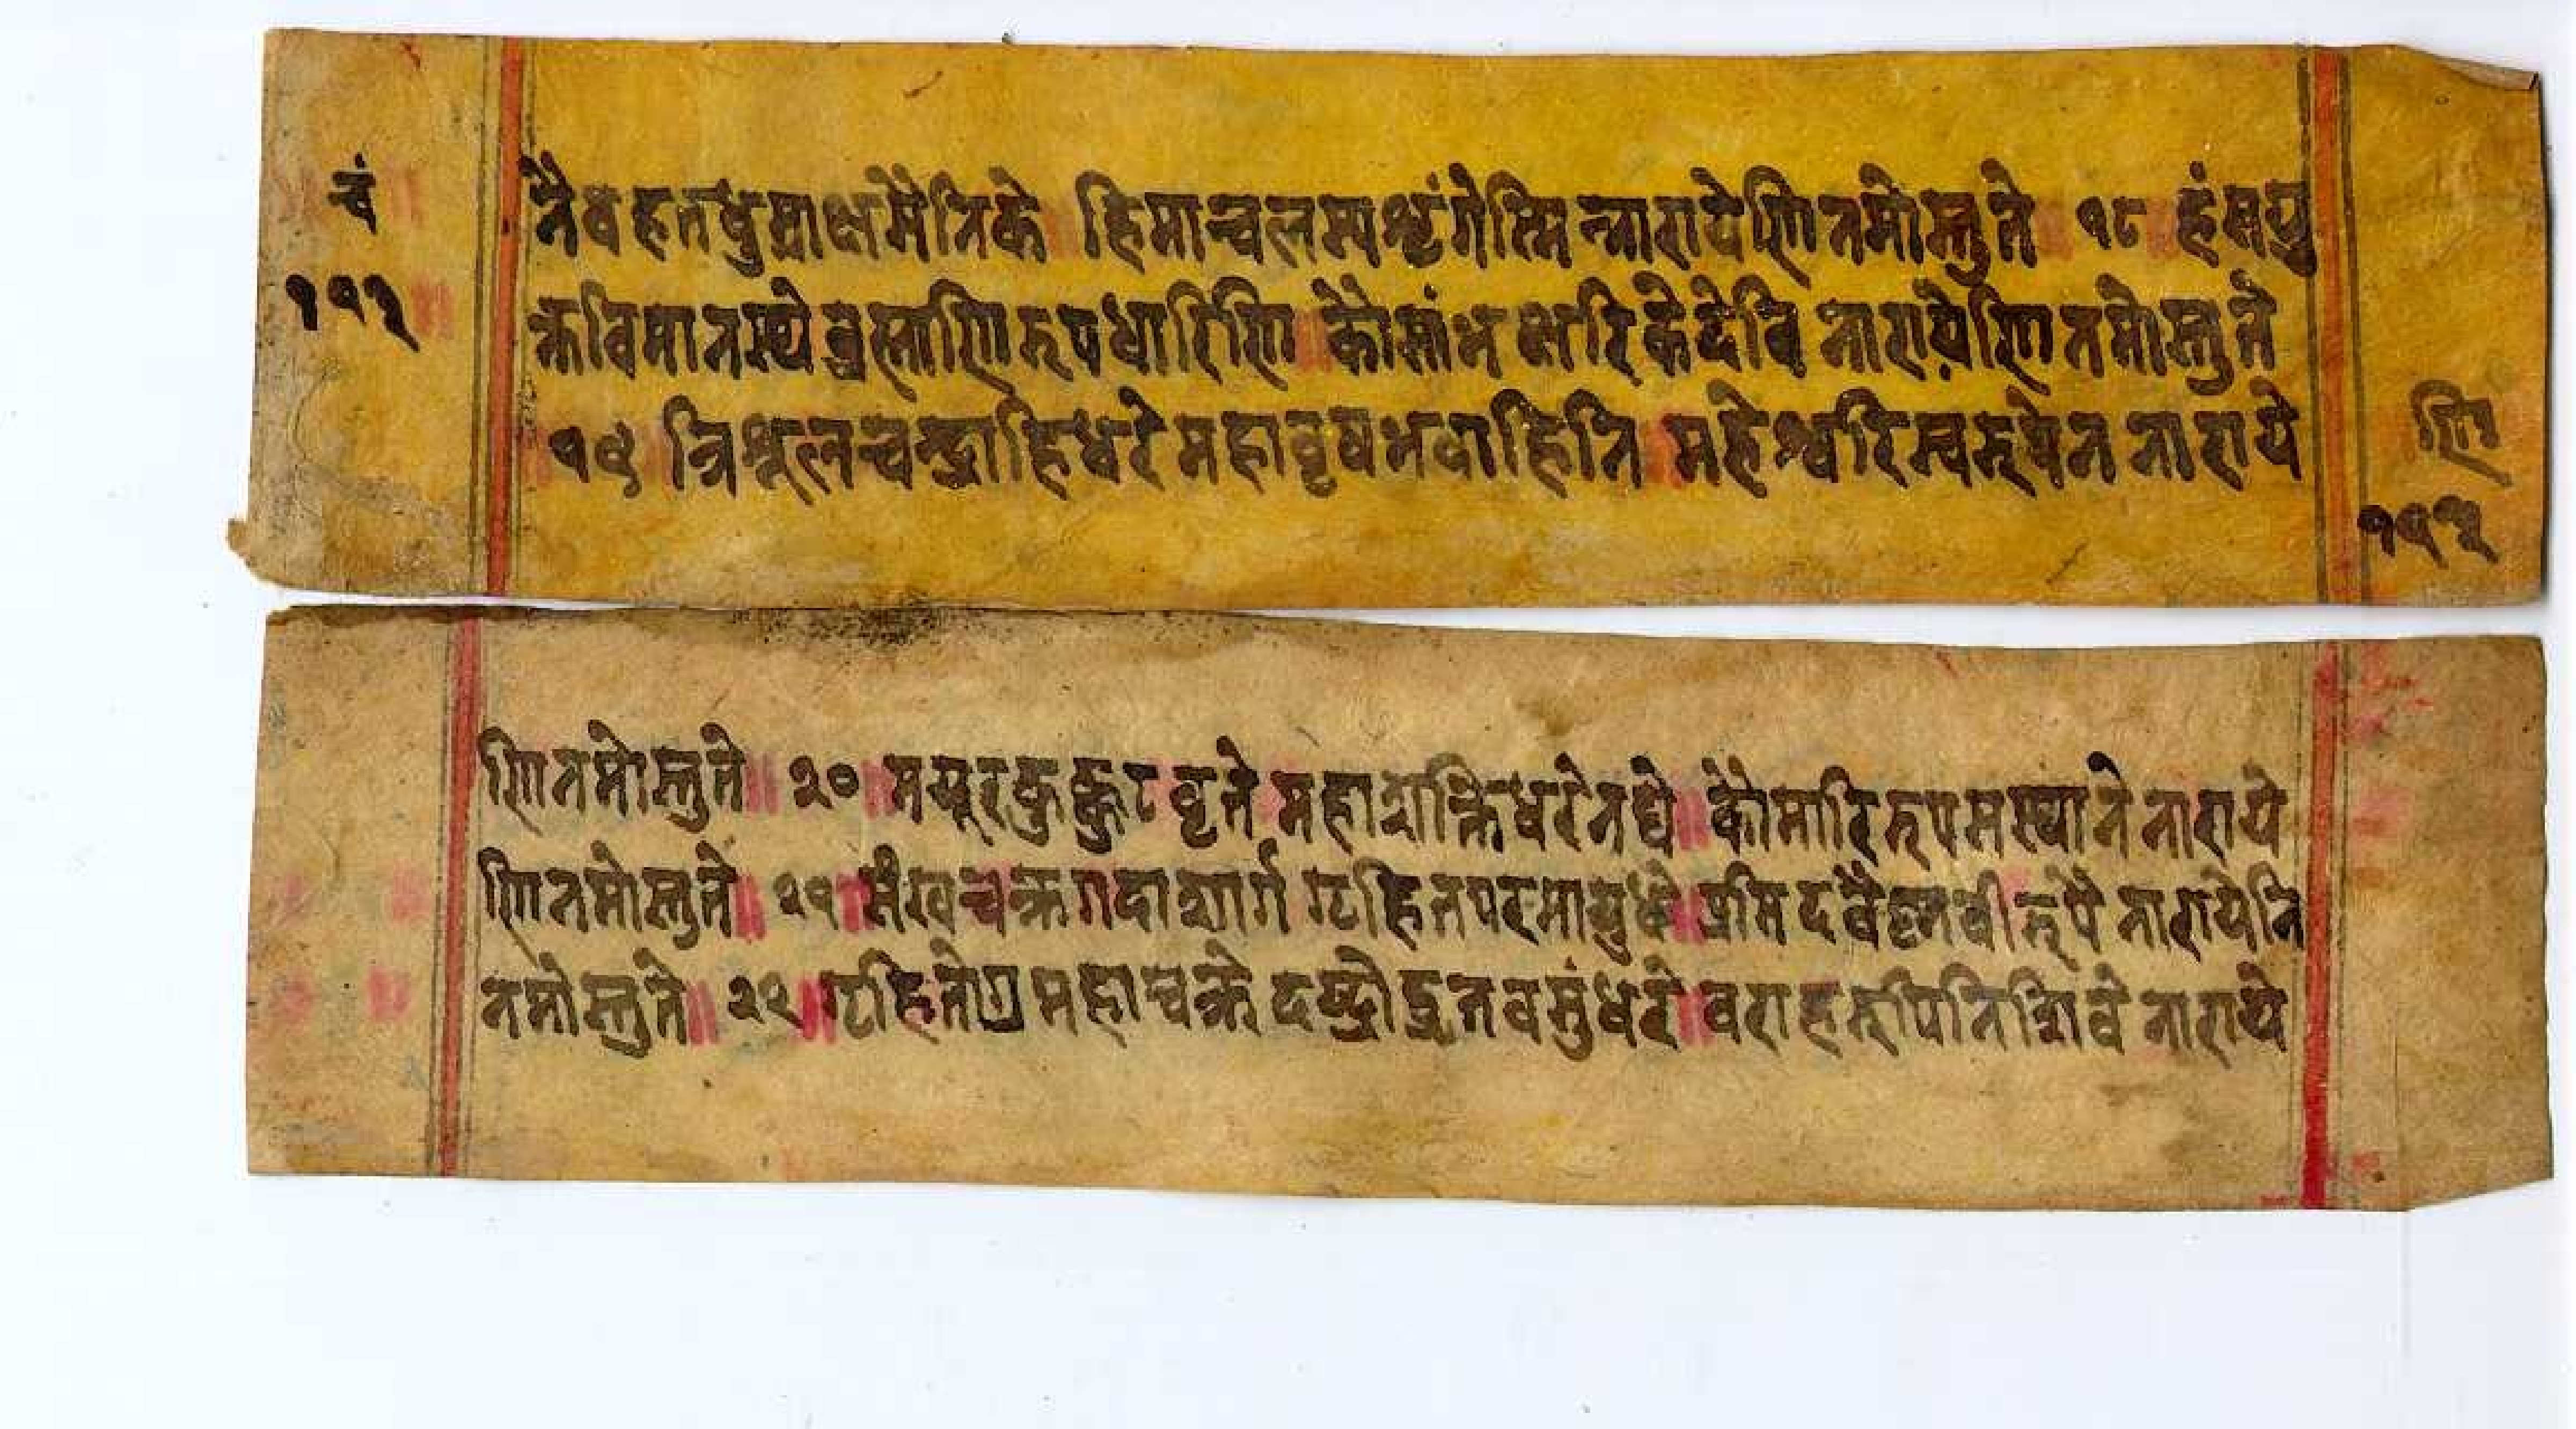 चं
११२
त्रैवहतवुम्राक्षमैत्रिके हिमाच्चलस्यश्रृंगेस्मिन्नारायेणिनमोस्तुते १८ हंसयु
क्तविमानस्थे ब्रह्माणिरुपधारिणि कौसांभक्षरिकेदेवि नारायेणिनमोस्तुते
१९ त्रिशूलचन्द्राहिधरे महावृषभवाहिनि महेश्वरिस्वरुपेन नाराये
णि
११२
णिनमोस्तुते ॥ २० ॥ मयूरकुक्कुटवृते महाशक्तिधरेनघे ॥ कौमारिरुपसस्थाने नाराये
णिनमोस्तुते ॥ २१ ॥ संखचक्रगदाशार्ग गृहितपरमायुधे ॥ प्रसिदवैष्नवीरुपे नारायेनि
नमोस्तुते ॥ २२ ॥ गृहितोग्रमहाचक्रे दष्ट्रोद्रुतवसुंधरे ॥ वराहरुपिनिशिवे नाराये